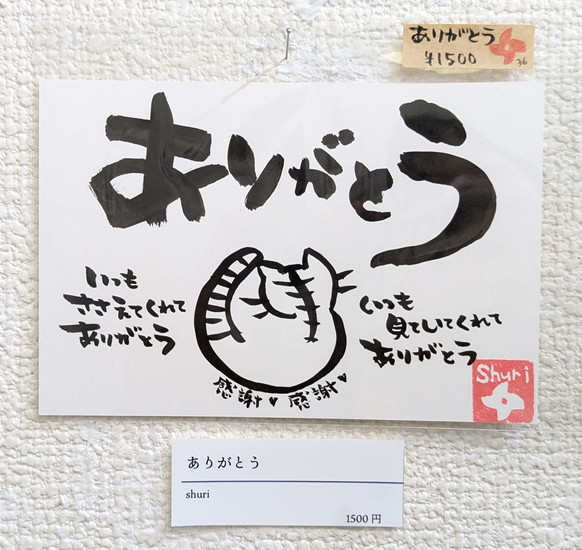 ありがとう
¥1500
36
ありがとう
いつも
ささえてくれて
ありがとう
いつも
見てしてくれて
ありがとう
感謝♥感謝♥
Shuri
ありがとう
shuri
1500円